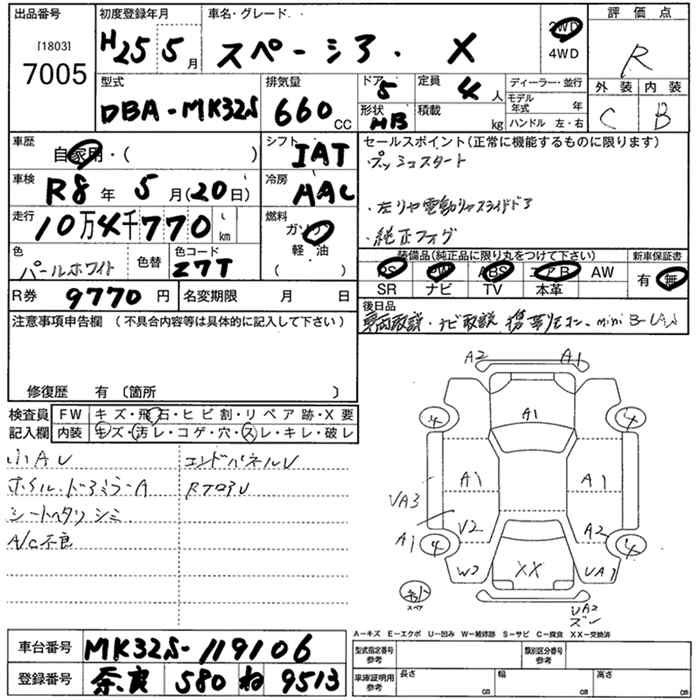 出品番号
[1803]
7005
初度登録年月
H25 5 月
車名・グレード
スペーシア. X
2WD
4WD
評価点
R
外装 内装
C B
型式
DBA-MK32S
排気量
660 CC
ドア
5
形状
HB
定員
4 人
積載
kg
ディーラー・並行
モデル年式 年
ハンドル 左・右
車歴
自家用・( )
シフト
IAT
車検
R8 年 5 月 (20日)
冷房
AAC
走行
10万4千770 km
燃料
ガソリン
軽油
( )
色
パールホワイト
色替
色コード
Z7T
R券 9770 円
名変期限 月 日
セールスポイント(正常に機能するものに限ります)
・プッシュスタート
・左リヤ電動リヤスライドドア
・純正フォグ
装備品(純正品に限り丸をつけて下さい)
PS PW ABS エアB AW
SR ナビ TV 本革
新車保証書
有・無
後日品
車両取説・ナビ取説
注意事項申告欄 (不具合内容等は具体的に記入して下さい)
修復歴 有〔箇所 〕
検査員記入欄
FW キズ・飛石・ヒビ割・リペア跡・X要
内装 キズ・汚レ・コゲ・穴・スレ・キレ・破レ
小AU
ホイル.ドアミラーA
シートヘタリ シミ
A/C不良
エンドパネルU
A2 A1
4 4
A1
A1 A1
UA3
U2 A2
A1 4 4
W2 XX UA1
スペア
UA2
A-キズ E-エクボ U-凹み W-補修跡 S-サビ C-腐食 XX-交換済
車台番号 MK32S-119106
登録番号 奈良 580 ね 9513
型式指定番号 参考
類別区分番号 参考
車庫証明用 参考
長さ cm
幅 cm
高さ cm